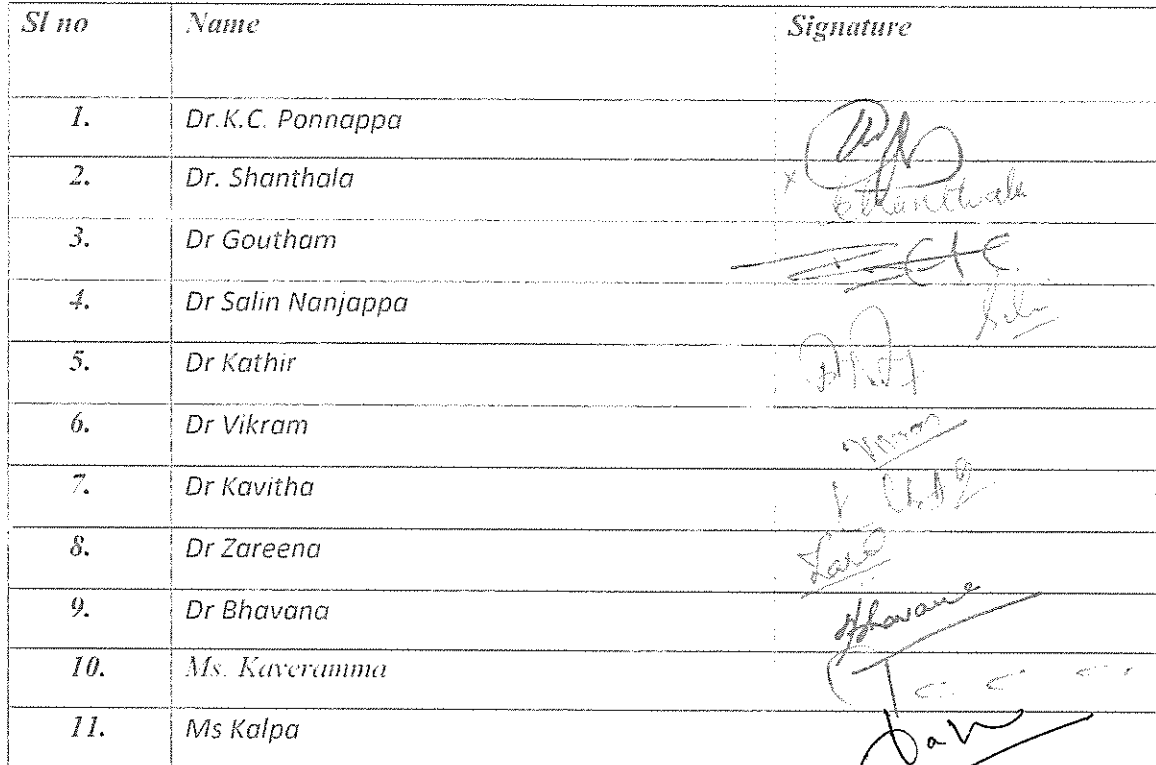 Sl no Name Signature
1. Dr.K.C. Ponnappa
2. Dr. Shanthala Shanthala
3. Dr Goutham
4. Dr Salin Nanjappa
5. Dr Kathir
6. Dr Vikram
7. Dr Kavitha
8. Dr Zareena
9. Dr Bhavana Bhavana
10. Ms. Kaveramma
11. Ms Kalpa